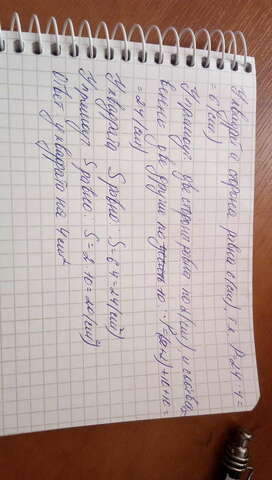 У квадрата сторона равна 6(см), т.к. P=24:4=
=6(см)
У прямоуг. две стороны равны по 2(см) и соответ-
венно две другие по 10. P=(2+2)+10+10=
=24(см)
У квадрата S равно: S=6·4=24(см²)
У прямоуг. S равно: S=2·10=20(см²)
Ответ у квадрата на 4 см²